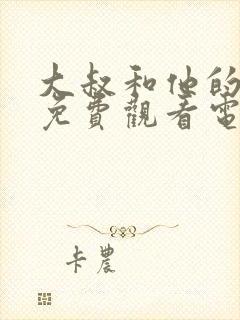 大叔和他的
免費觀看電
卡農